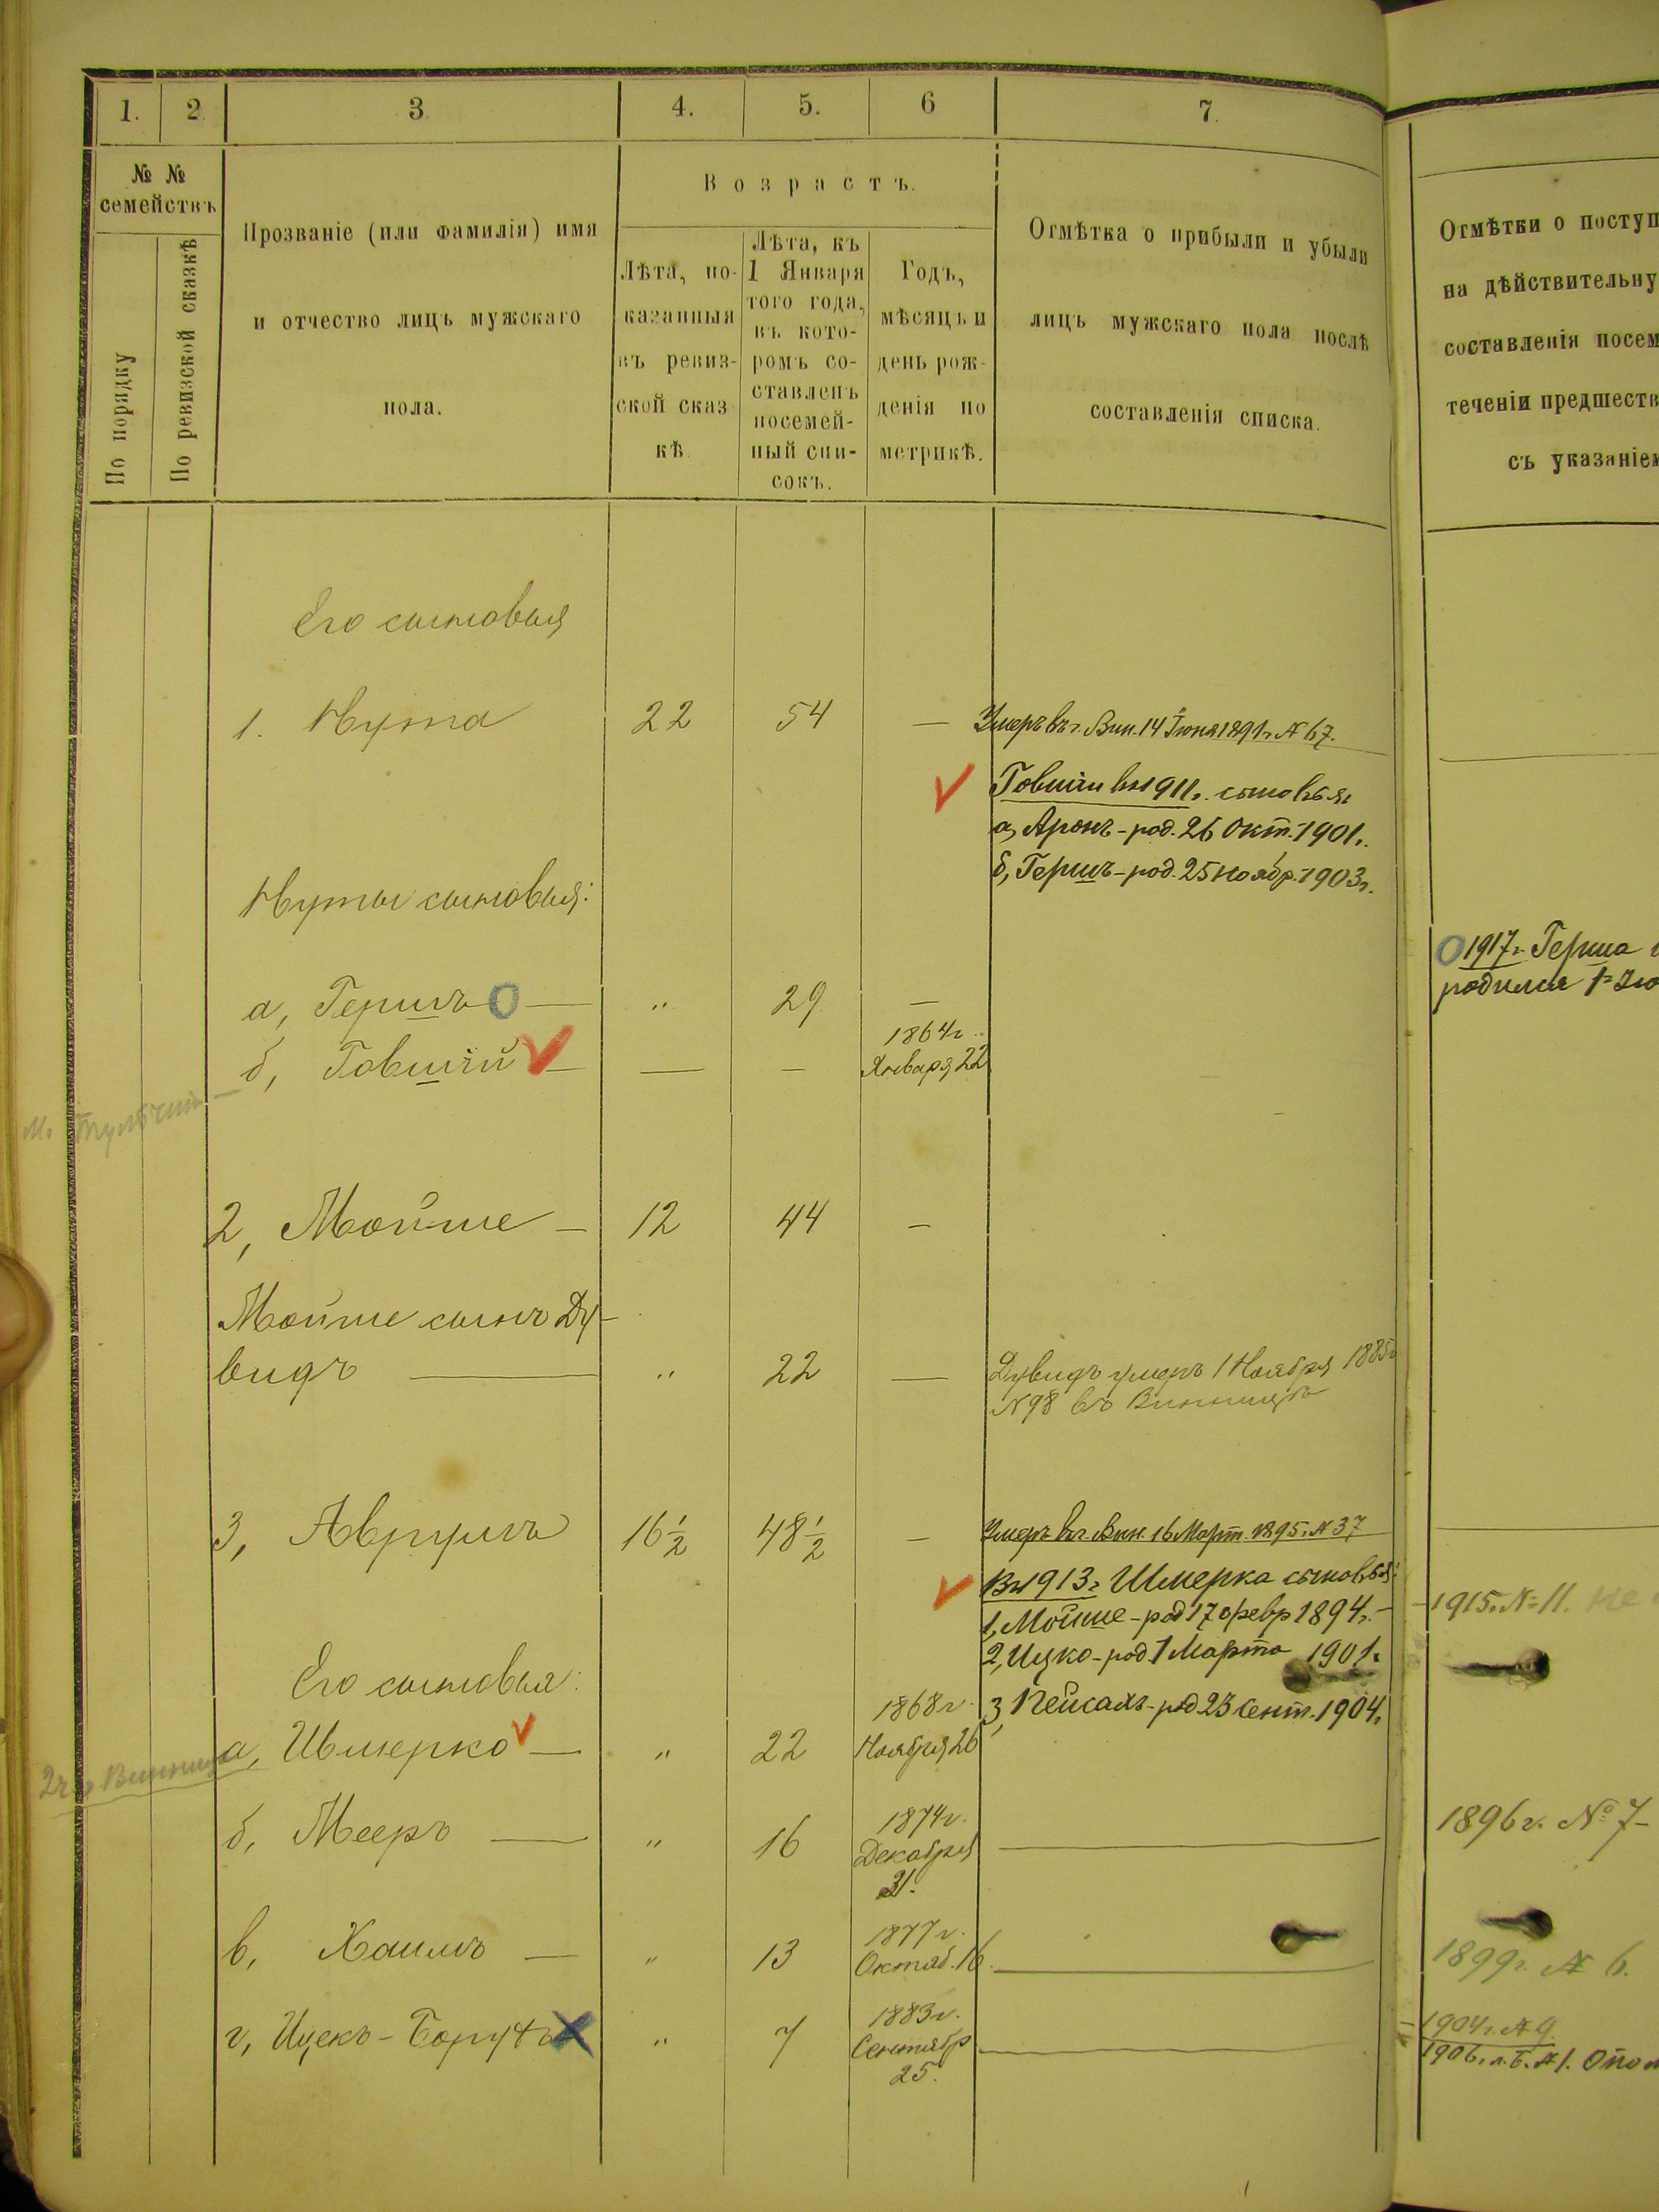 1. 2 3 4. 5. 6 7.
№ №
семействъ
По порядку
По ревизской сказкѣ
Прозваніе (или фамилія) имя
и отчество лицъ мужскаго
пола.
Возрастъ.
Лѣта, по-
казанныя
въ ревиз-
ской сказ
кѣ.
Лѣта, къ
1 Января
того года,
въ кото-
ромъ со-
ставленъ
посемей-
ный спи-
сокъ.
Годъ,
мѣсяцъ и
день рож-
денія по
метрикѣ.
Отмѣтка о прибыли и убыли
лицъ мужскаго пола послѣ
составленія списка.
Отмѣтки о поступ
на дѣйствительну
составленія посем
теченіи предшеств
съ указаніем
Его сыновья
1. Нута 22 54 — Умеръ въ г. Вин. 14 Іюня 1891 г. № 67.
Говшіи въ 1911 г. сыновья:
а, Аронъ - род. 26 Окт. 1901 г.
б, Гершъ - род. 25 Ноябр. 1903 г.
Нуты сыновья:
О 1917 г. Герша
родился 1
а, Гершъ О — " 29 —
б, Говшій — — — 1864 г.
Января 22
м. Тульчин
2, Мойше — 12 44 —
Мойше сынъ Ду-
видъ — " 22 — Дувидъ умеръ 1 Ноября 1885 г.
№ 98 въ Винницѣ
3, Аврумъ 16 ½ 48 ½ — Умеръ въ г. Вин. 16 Март. 1895 г. № 37
Въ 1913 г. Шмерка сыновья:
1, Мойше - род 17 февр 1894 г. — 1915 г. № 11. не
2, Ицко - род 1 Марта 1901 г.
3, Пейсахъ - род 23 Сент. 1904 г.
Его сыновья:
а, Шмерко — " 22 1868 г.
Ноября 26
Винница
б, Мееръ — " 16 1874 г.
Декабря
31.
1896 г. № 7 -
в, Хаимъ — " 13 1877 г.
Октяб. 16.
1899 г. № 6.
г, Ицекъ - Борухъ " 7 1883 г.
Сентябр
25.
1904 г. № 9.
1906 г. л. Б. № 1.